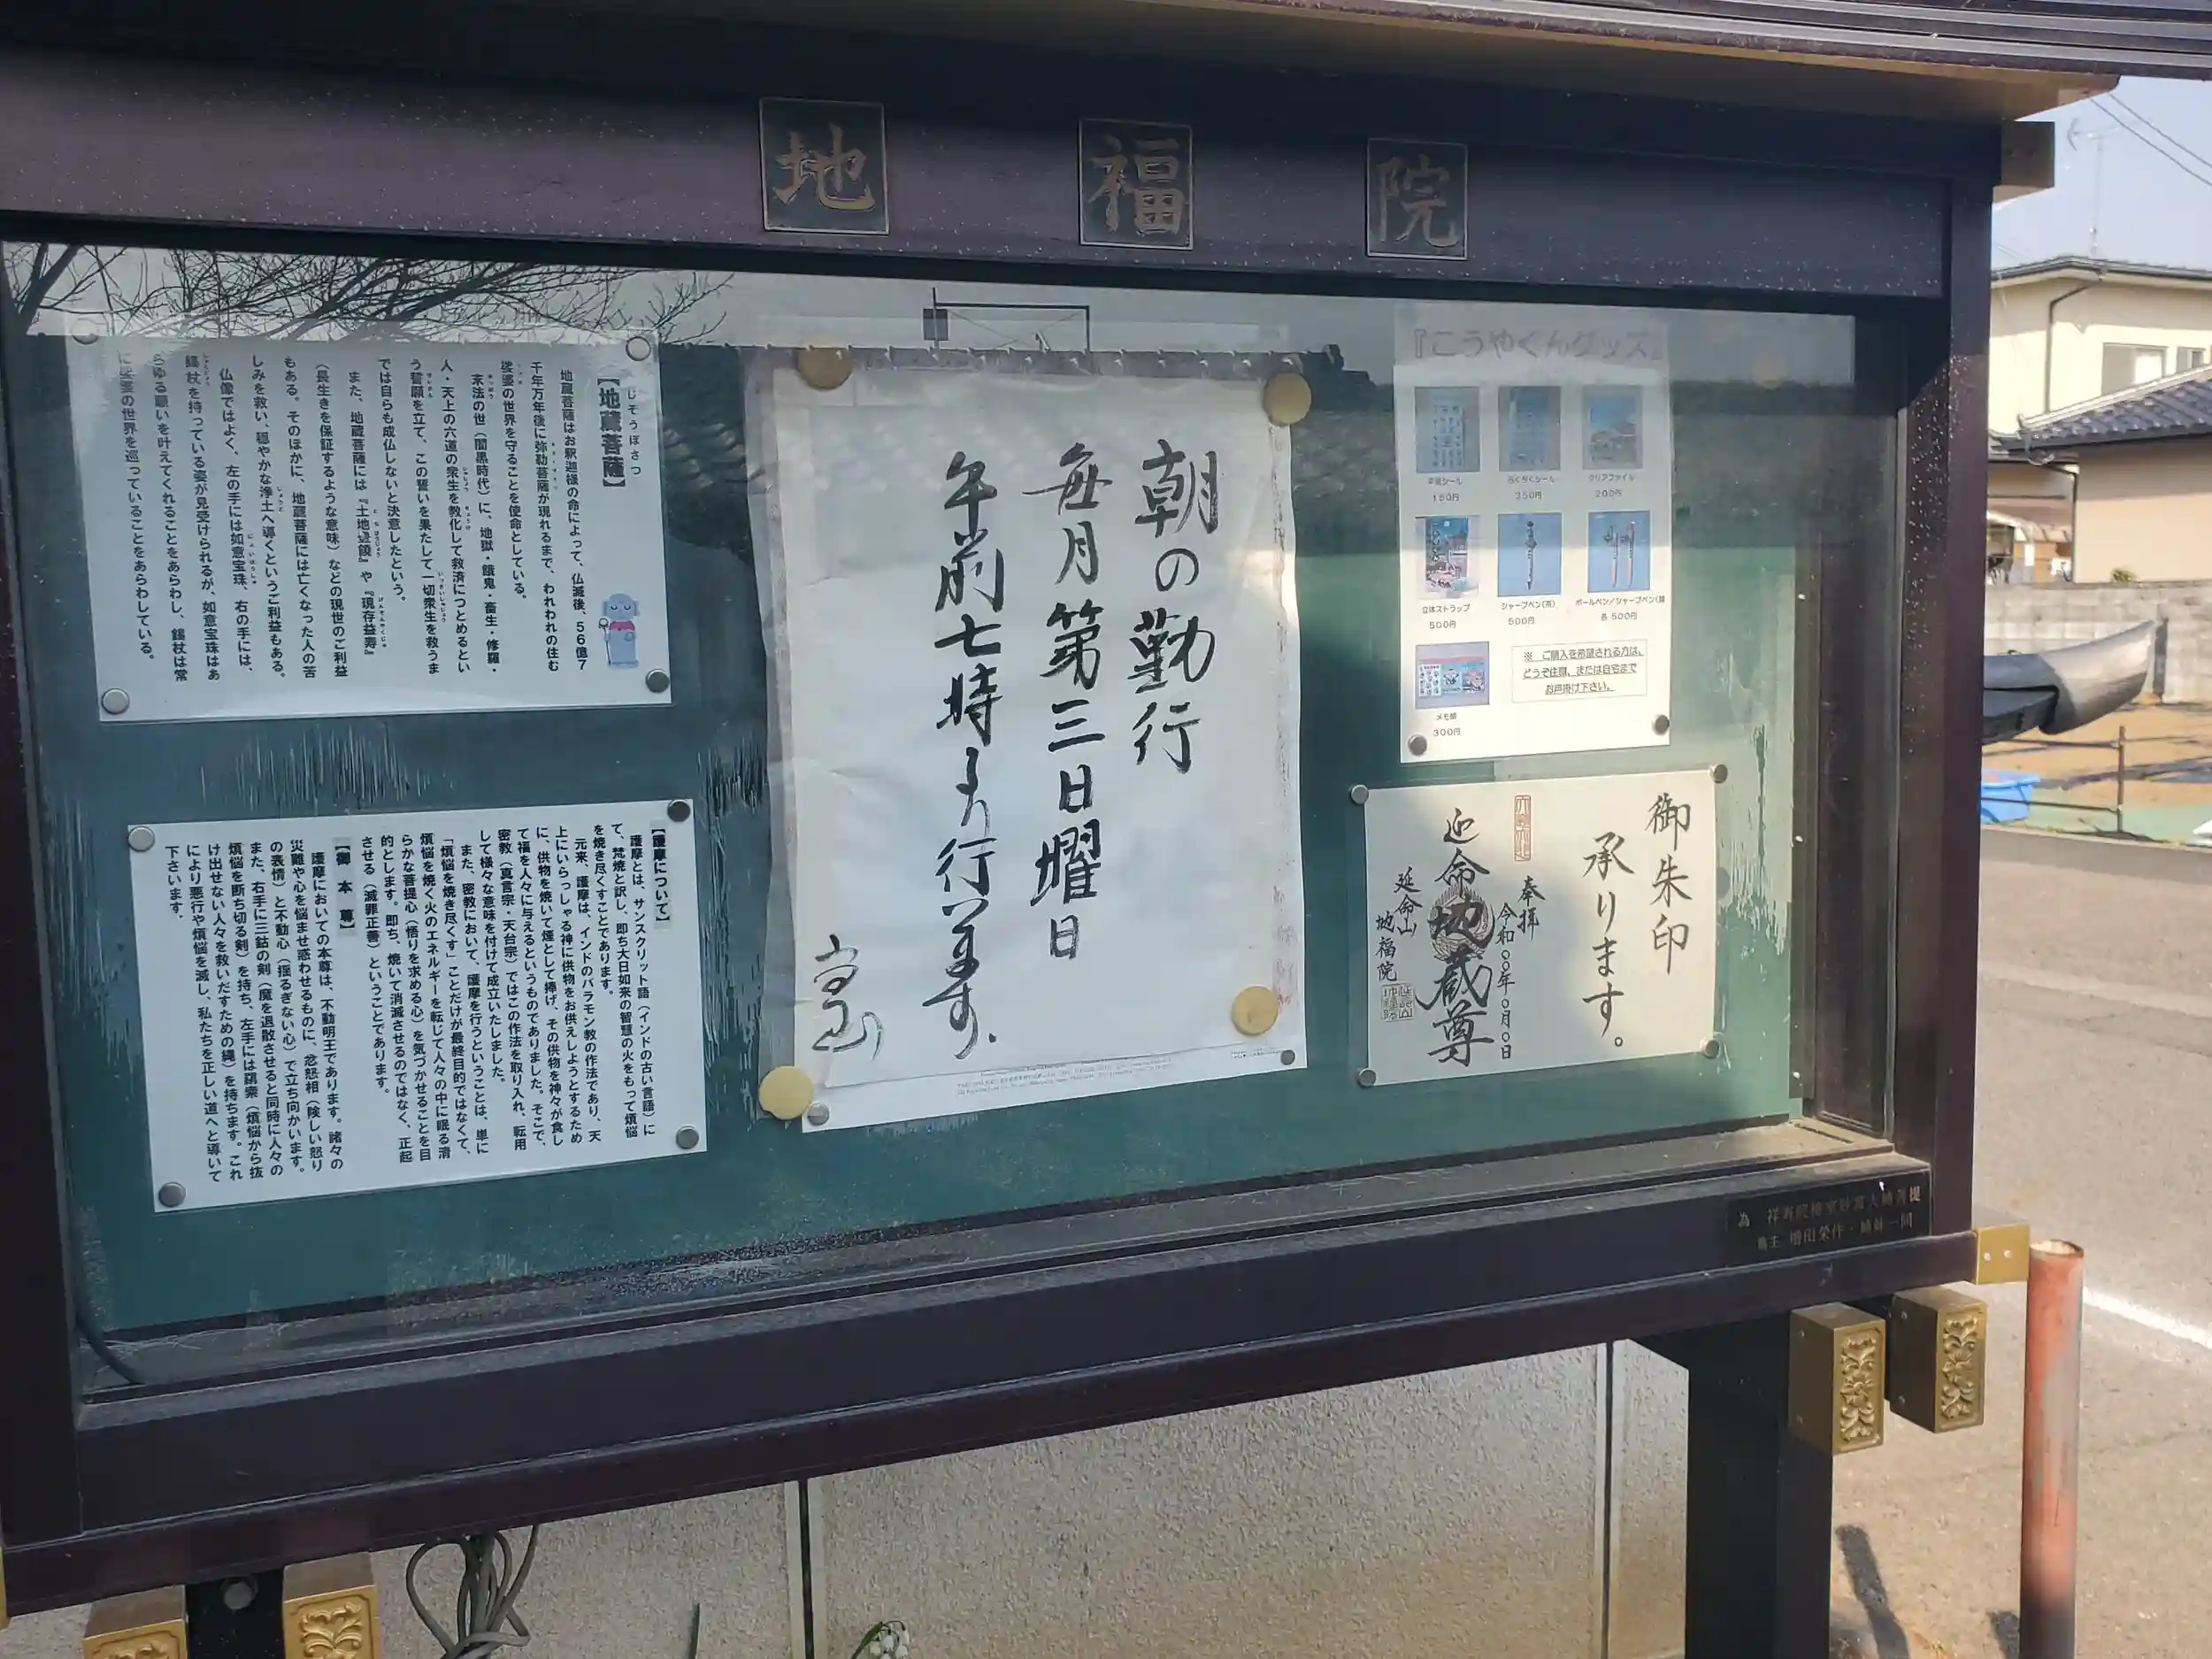 地福院
【地蔵菩薩】
じぞうぼさつ
地蔵菩薩はお釈迦様の命によって、仏滅後、56億7
千年万年後に弥勒菩薩が現れるまで、われわれの住む
娑婆の世界を守ることを使命としている。
末法の世（闇黒時代）に、地獄・餓鬼・畜生・修羅・
人・天上の六道の衆生を教化して救済につとめるとい
う誓願を立て、この誓いを果たして一切衆生を救うま
では自らも成仏しないと決意したという。
また、地蔵菩薩には『土地豊饒』や『現存益寿』
（長生きを保証するような意味）などの現世のご利益
もある。そのほかに、地蔵菩薩には亡くなった人の苦
しみを救い、穏やかな浄土へ導くというご利益もある。
仏像ではよく、左の手には如意宝珠、右の手には、
錫杖を持っている姿が見受けられるが、如意宝珠はあ
らゆる願いを叶えてくれることをあらわし、錫杖は常
に娑婆の世界を巡っていることをあらわしている。
【護摩について】
護摩とは、サンスクリット語（インドの古い言語）に
て、梵焼と訳し、即ち大日如来の智慧の火をもって煩悩
を焼き尽くすことであります。
元来、護摩は、インドのバラモン教の作法であり、天
上にいらっしゃる神に供物をお供えしようとするため
に、供物を焼いて煙として捧げ、その供物を神々が食し
て福を人々に与えるというものでありました。そこで、
密教（真言宗・天台宗）ではこの作法を取り入れ、転用
して様々な意味を付けて成立いたしました。
また、密教において、護摩を行うということは、単に
「煩悩を焼き尽くす」ことだけが最終目的ではなくて、
煩悩を焼く火のエネルギーを転じて人々の中に眠る清
らかな菩提心（悟りを求める心）を気づかせることを目
的とします。即ち、焼いて消滅させるのではなく、正起
させる（滅罪正善）ということであります。
【御本尊】
護摩においての本尊は、不動明王であります。諸々の
災難や心を悩ませ惑わせるものに、忿怒相（険しい怒り
の表情）と不動心（揺るぎない心）で立ち向かいます。
また、右手に三鈷の剣（魔を退散させると同時に人々の
煩悩を断ち切る剣）を持ち、左手には羂索（煩悩から抜
け出せない人々を救いだすための縄）を持ちます。これ
により悪行や煩悩を滅し、私たちを正しい道へと導いて
下さいます。
朝の勤行
毎月第三日曜日
午前七時より行います。
『こうやくんグッズ』
平面シール
150円
ぷくぷくシール
350円
クリアファイル
200円
立体ストラップ
500円
シャープペン(茶)
500円
ボールペン／シャープペン
各 500円
メモ帳
300円
※ ご購入を希望される方は、
どうぞ住職、または自宅まで
お声掛け下さい。
御朱印
承ります。
奉拝
令和〇〇年〇月〇日
延命地蔵尊
延命山
地福院